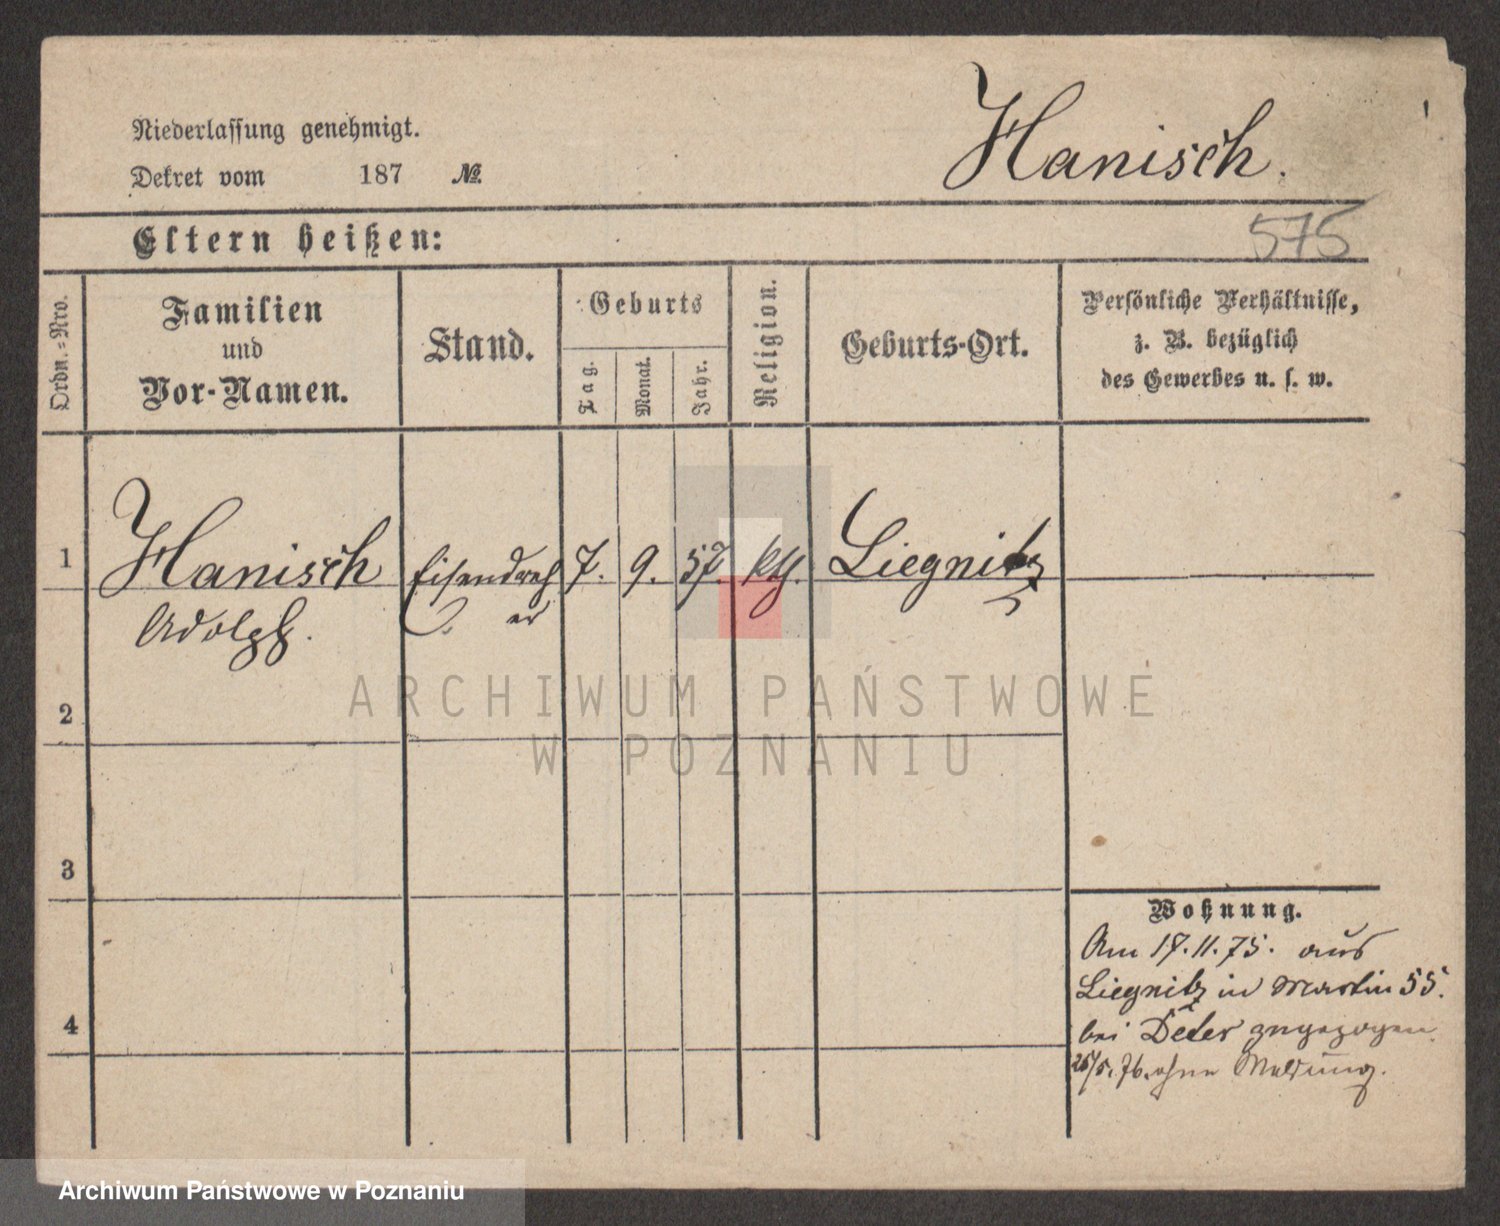 Hanisch.
Niederlassung genehmigt.
Dekret vom 187 №
575
Eltern heißen:
Ordn.=Nro.
Familien
und
Vor-Namen.
Stand.
Geburts
Tag.
Monat.
Jahr.
Religion.
Geburts-Ort.
Persönliche Verhältnisse,
z. B. bezüglich
des Gewerbes u. s. w.
1 Hanisch Eisendreh 7. 9. 57. kth. Liegnitz
Adolph. er
2
3
4
Wohnung.
Am 17.11.75. aus
Liegnitz in Martin 55.
bei Deter zugezogen.
25/5.76. ohne Meldung.
ARCHIWUM PAŃSTWOWE
W POZNANIU
Archiwum Państwowe w Poznaniu